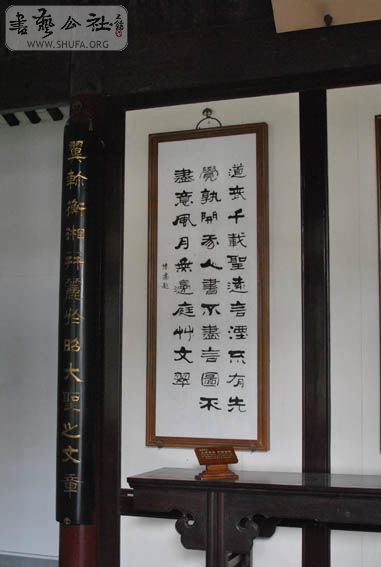 書藝公社
WWW.SHUFA.ORG
道喪千載聖遠言湮不有先
覺孰開我人書不盡言圖不
盡意風月無邊庭艸交翠
翼軫衡湘并麗於昭大聖之文章